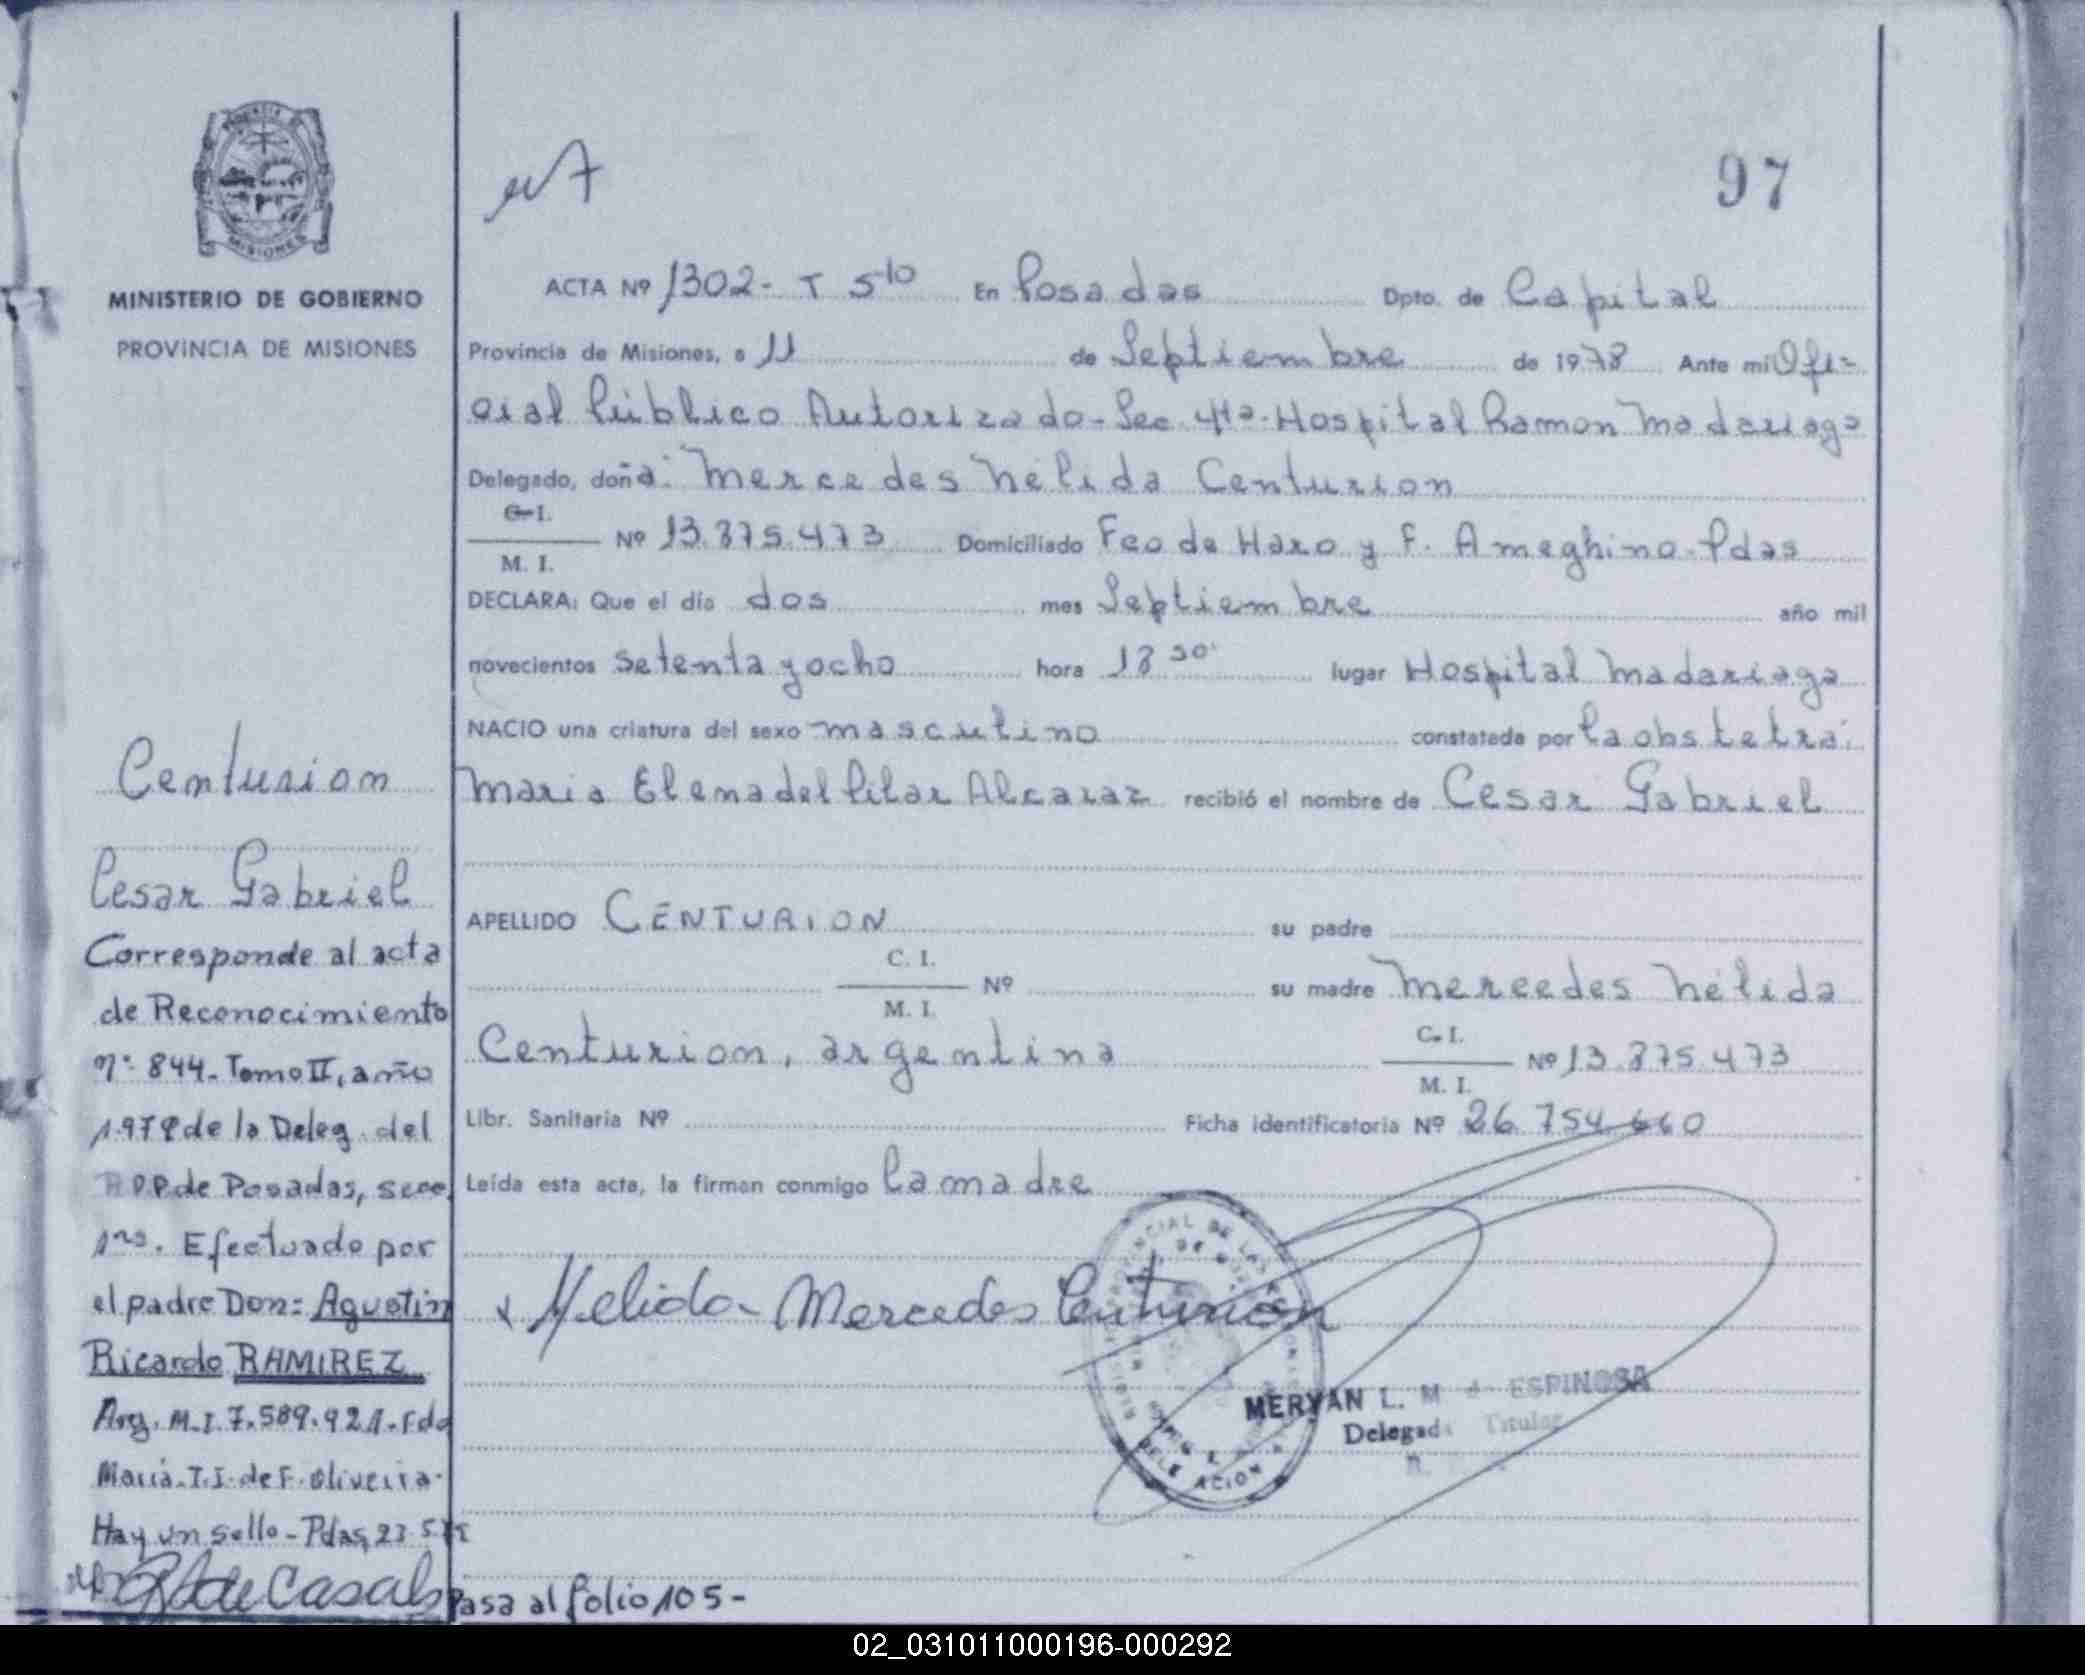 97
PROVINCIA DE
MISIONES
MINISTERIO DE GOBIERNO
PROVINCIA DE MISIONES
ACTA Nº 1302- T 5to En Posadas Dpto. de Capital
Provincia de Misiones, a 11 de Septiembre de 1978 Ante mi Ofi-
cial Público Autorizado-Sec 4ta-Hospital Ramon Madariaga
Delegado, doña: Mercedes Nélida Centurion
C.I.
M. I.
Nº 13.875.473 Domiciliado Fco de Haro y F. Ameghino-Pdas
DECLARA: Que el día dos mes Septiembre año mil
novecientos setenta y ocho hora 18 30' lugar Hospital Madariaga
NACIO una criatura del sexo masculino constatada por la obstetra:
Maria Elena del Pilar Alcaraz recibió el nombre de Cesar Gabriel
APELLIDO CENTURION su padre
C. I.
M. I.
Nº su madre Mercedes Nélida
Centurion, argentina
C. I.
M. I.
Nº 13.875.473
Libr. Sanitaria Nº Ficha identificatoria Nº 26.754.660
Leída esta acta, la firman conmigo la madre
Nelida Mercedes Centurion
MERYAN L. M d ESPINOSA
Delegada Titular
DELEGACION
Centurion
Cesar Gabriel
Corresponde al acta
de Reconocimiento
nº 844- Tomo II, año
1979 de la Deleg. del
R.P.P. de Posadas, secc.
1ra. Efectuado por
el padre Don: Agustin
Ricardo RAMIREZ
Arg. M.I. 7.589.921-Fdo
Maria.T.I. de F. Oliveira-
Hay un sello-Pdas, 23 5
de Casals
Pasa al folio 105-
02_031011000196-000292